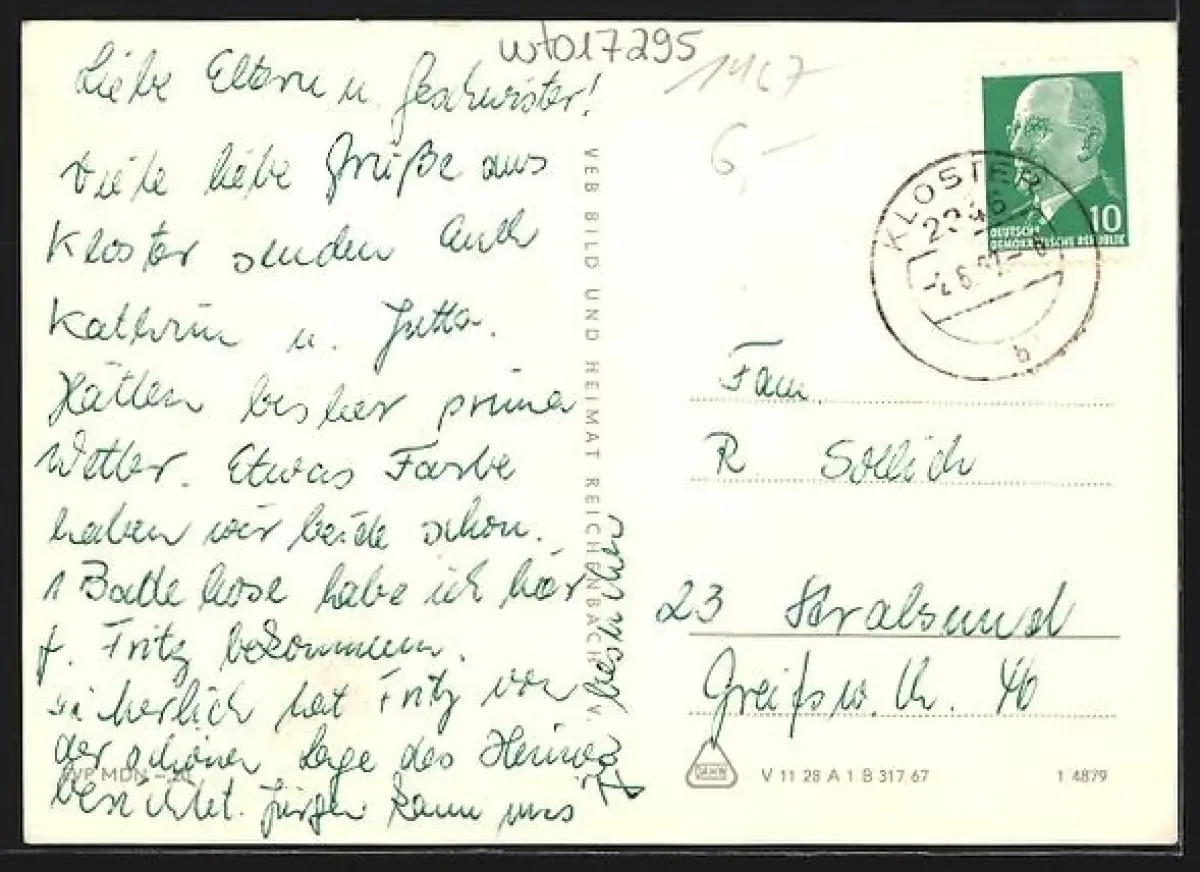 wto17295
6,-
Liebe Eltern u. Geschwister!
Viele liebe Grüße aus
Kloster senden Euch
Kathrin u. Jutta.
Hatten bisher prima
Wetter. Etwas Farbe
haben wir beide schon.
1 Badehose habe ich hier
f. Fritz bekommen.
Sicherlich hat Fritz von
der schönen Lage des Heimes
berichtet. Jürgen kann uns
ja besuchen
EVP MDN
VEB BILD UND HEIMAT REICHENBACH V.
10
DEUTSCHE
DEMOKRATISCHE REPUBLIK
KLOSTER
2346
b
Fam.
R. Sollich
23 Stralsund
Greifsw. Ch. 46
DAHW
V 11 28 A 1 B 317 67
1 4879